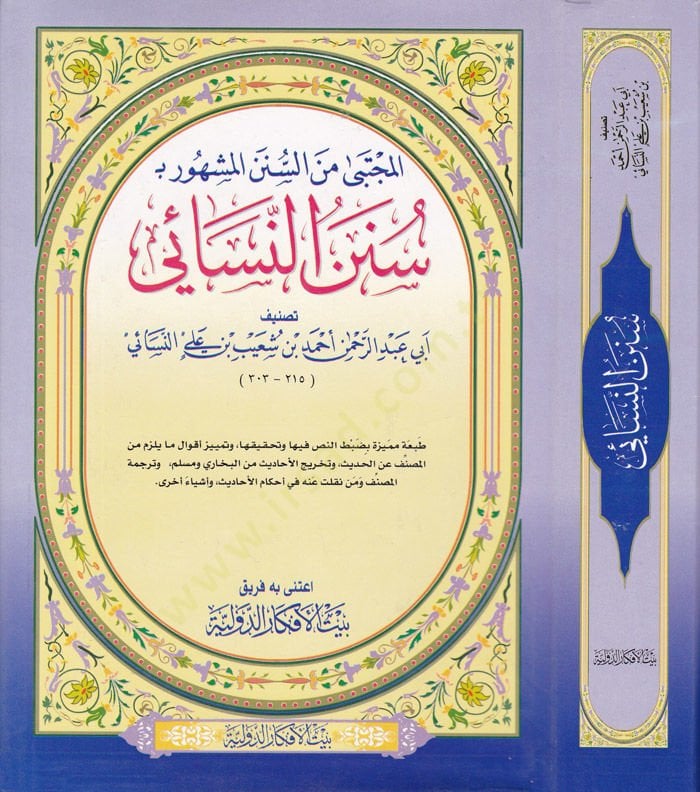 المجتبى من السنن المشهور بـ
سُنَنُ النَّسَائِي
تصنيف
أبي عبد الرحمن أحمد بن شعيب بن علي النسائي
( ٢١٥ - ٣٠٣ )
طبعة مميزة بضبط النص فيها وتحقيقها، وتمييز أقوال ما يلزم من
المصنِّف عن الحديث، وتخريج الأحاديث من البخاري ومسلم، وترجمة
المصنِّف ومَن نقلت عنه في أحكام الأحاديث، وأشياء أخرى.
اعتنى به فريق
بيت الأفكار الدولية
بيت الأفكار الدولية
تصنيف
أبي عبد الرحمن أحمد
بن شعيب بن علي النسائي
سُنَنُ النَّسَائِي
بيت الأفكار الدولية